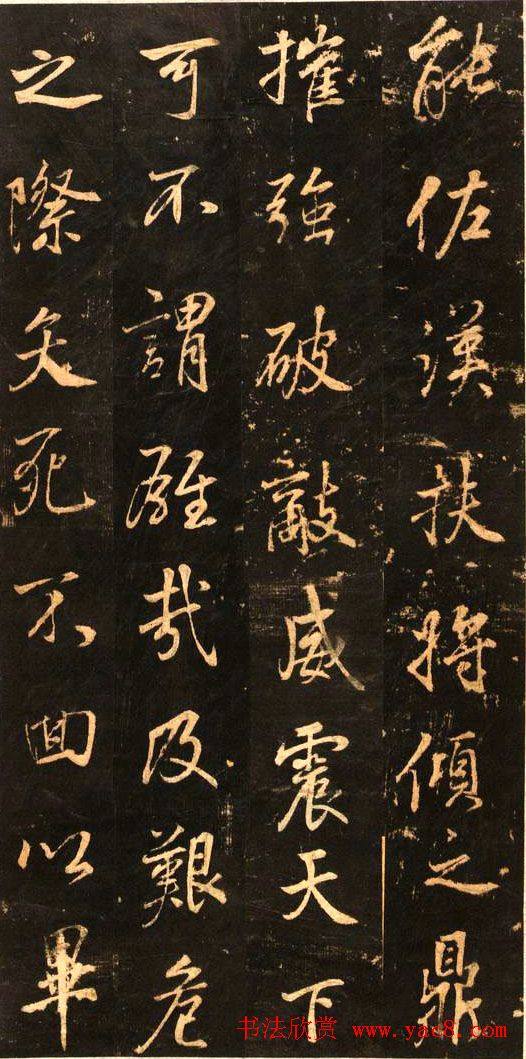 能佐漢扶将傾之鼎
摧強破敵威震天下
可不謂雄哉及艱危
之際矢死不回以畢
书法欣赏 www.yac8.com